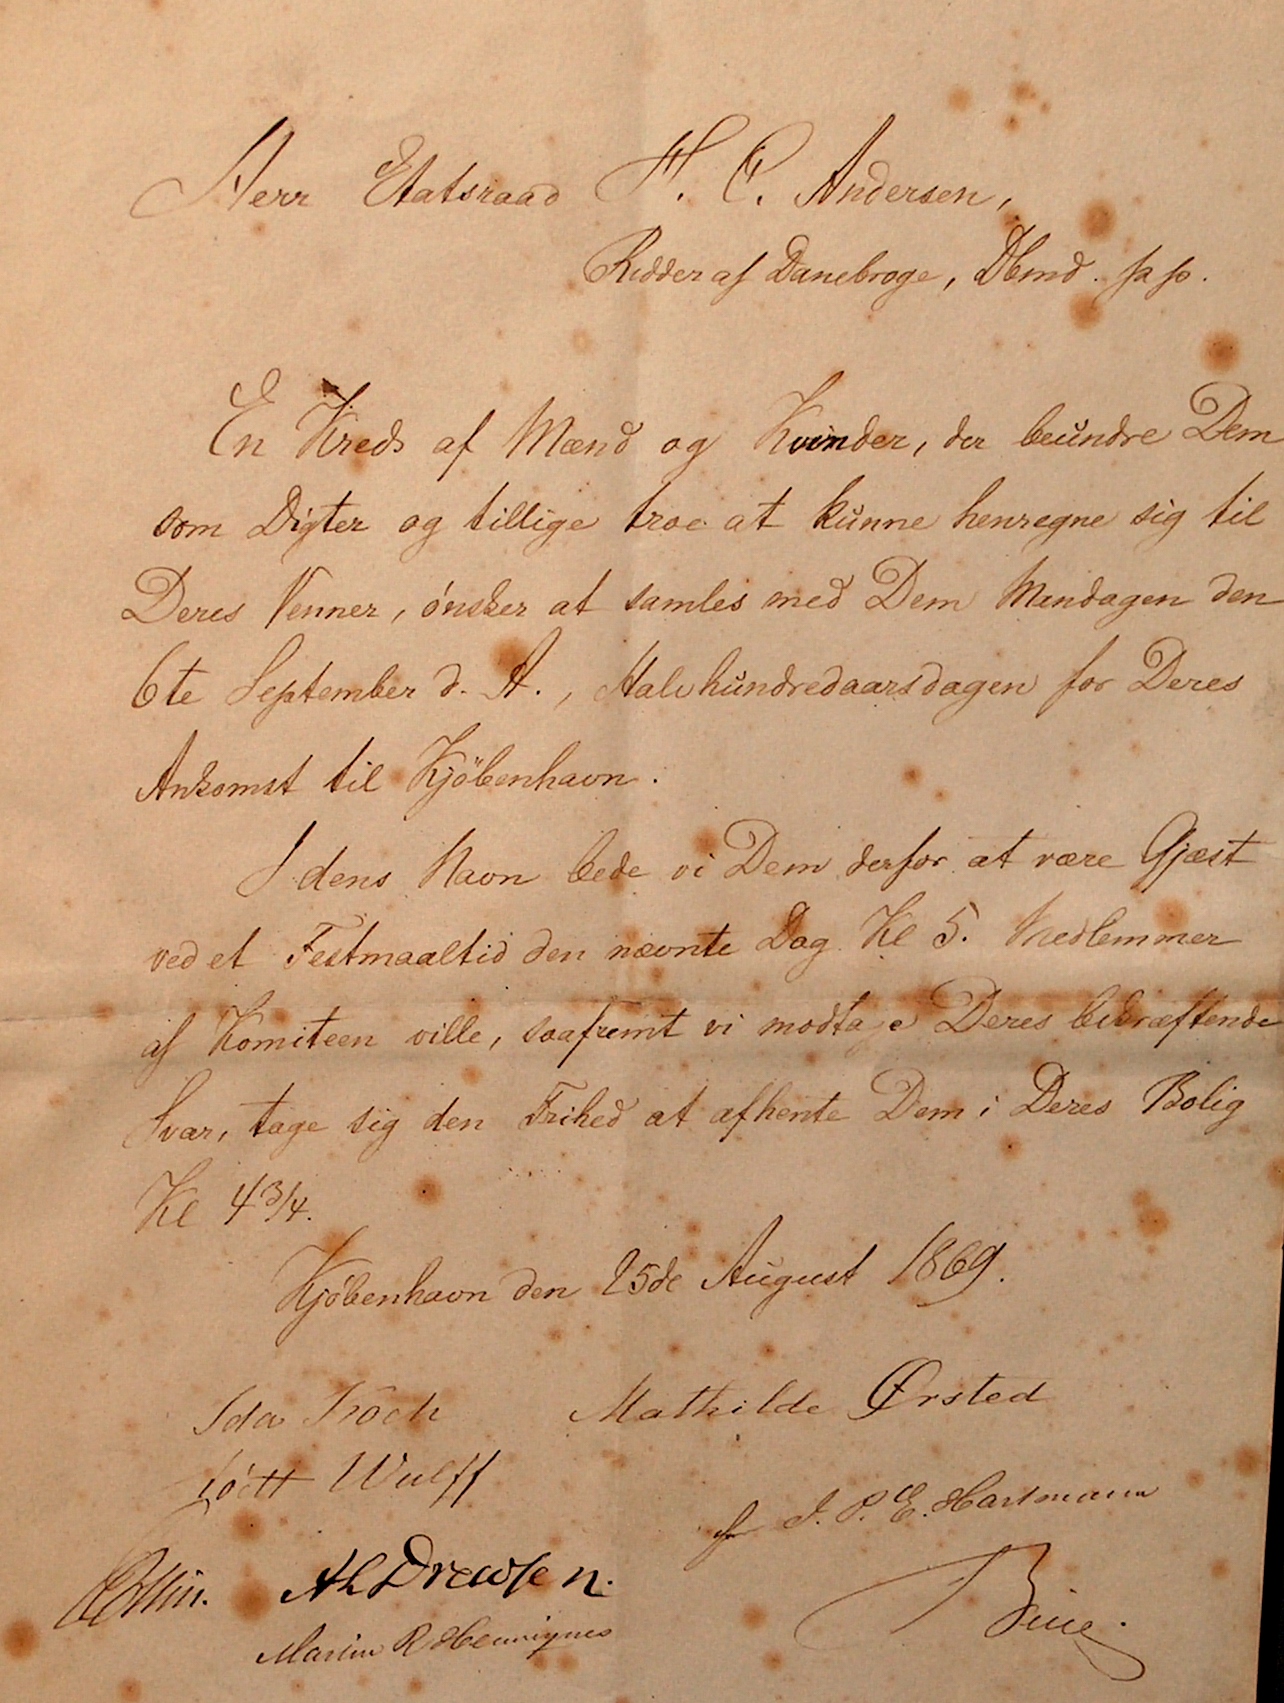 Herr Etatsraad H. C. Andersen,
Ridder af Danebroge, Dbmd. pp.
En Kreds af Mænd og Kvinder, der beundre Dem
som Digter og tillige troe at kunne henregne sig til
Deres Venner, ønsker at samles med Dem Mandagen den
6te September d. A., Halvhundredaarsdagen for Deres
Ankomst til Kjöbenhavn.
I dens Navn bede vi Dem derfor at være Gjæst
ved et Festmaaltid den nævnte Dag Kl 5. Medlemmer
af Komiteen ville, saafremt vi modtage Deres bekræftende
Svar, tage sig den Frihed at afhente Dem i Deres Bolig
Kl 4 3/4.
Kjøbenhavn den 25de August 1869.
Ida Koch Mathilde Ørsted
Wulff
J. P. E. Hartmann
Collin. Drewsen.
Martin R Henriques
Bille.